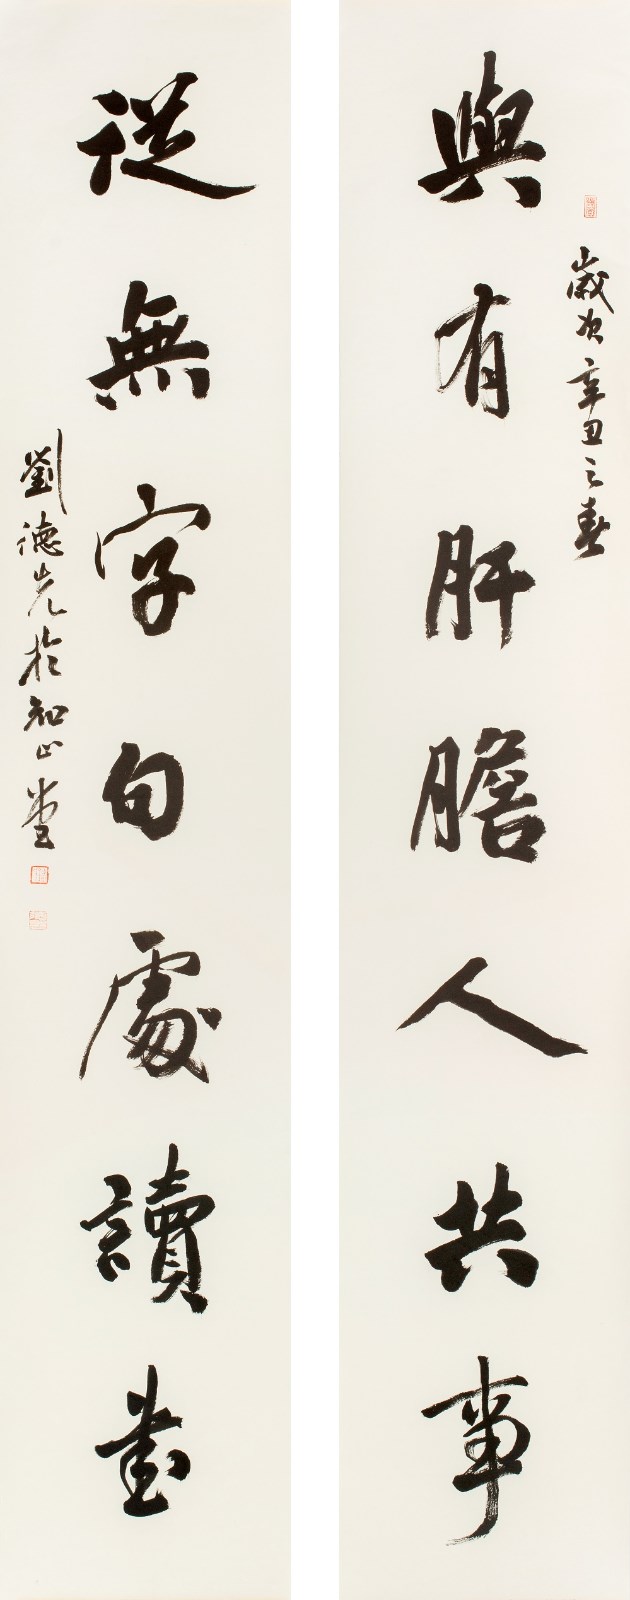 歲次辛丑之春
與有肝膽人共事
從無字句處讀書
劉德光於知止堂